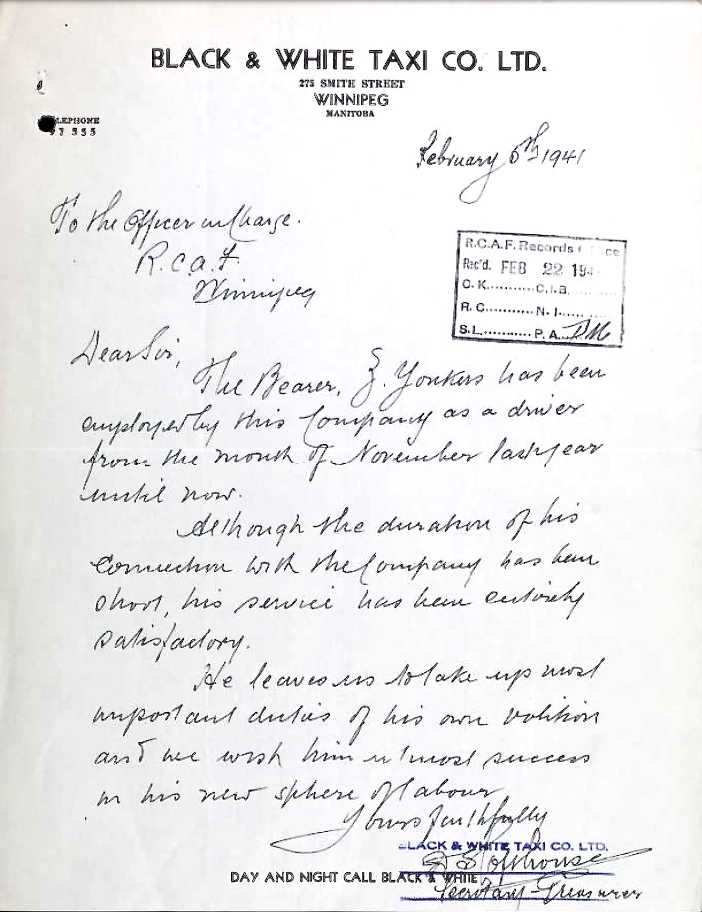 BLACK & WHITE TAXI CO. LTD.
275 SMITH STREET
WINNIPEG
MANITOBA
LEPHONE
February 5th 1941
To the Officer in Charge.
R.C.A.F.
Winnipeg
R.C.A.F. Records
Rec'd. FEB 22 194
O.K..........C.I.B.........
R.C...........N.I.........
S.L............P.A.
Dear Sir,
The Bearer, Z. Yonkers has been
employed by this Company as a driver
from the month of November last year
until now.
Although the duration of his
Connection with the Company has been
short, his service has been entirely
satisfactory.
He leaves us to take up most
important duties of his own volition
and we wish him utmost success
in his new sphere of labour
Yours faithfully
BLACK & WHITE TAXI CO. LTD.
Secretary-Treasurer
DAY AND NIGHT CALL BLACK & WHITE